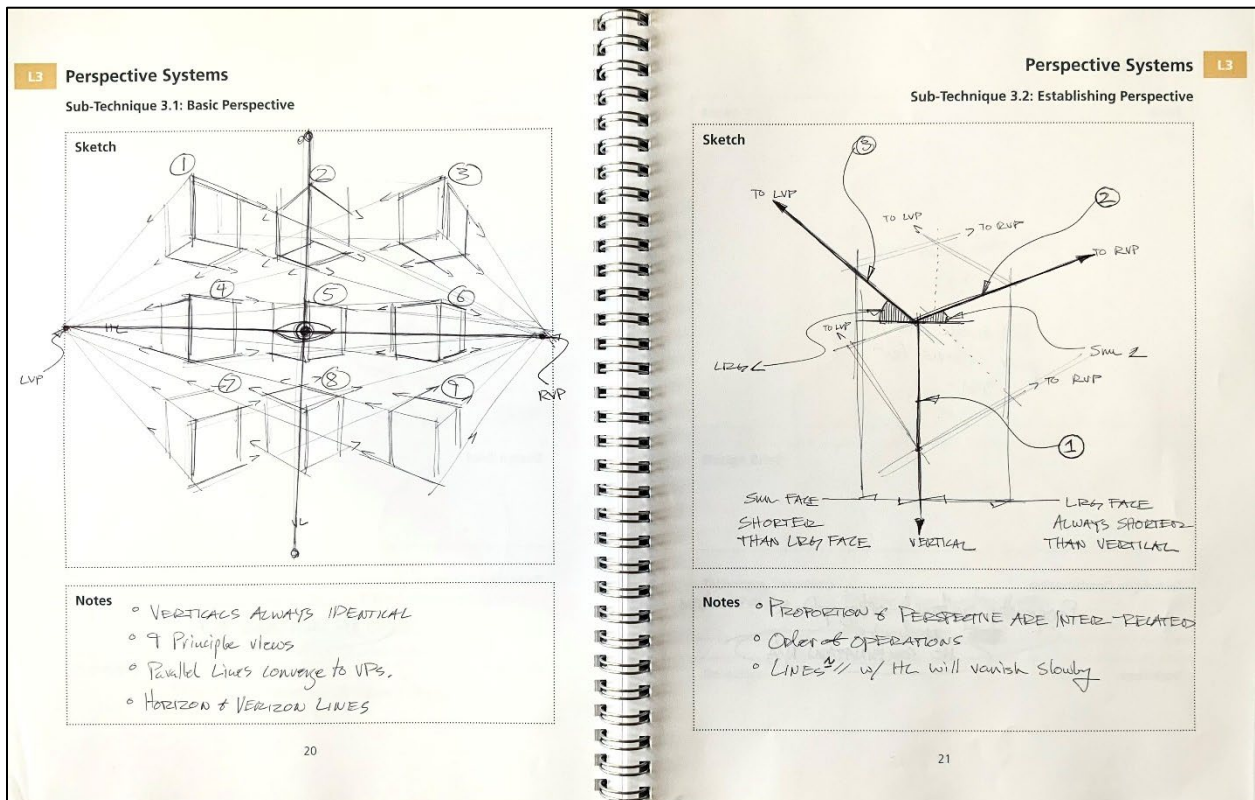 L3 Perspective Systems
Sub-Technique 3.1: Basic Perspective
Sketch
1
2
3
4
5
6
HL
LVP
RVP
7
8
9
VL
Notes
° VERTICALS ALWAYS IDENTICAL
° 9 Principle views
° Parallel Lines converge to VPs.
° HORIZON & VERIZON LINES
20
Perspective Systems L3
Sub-Technique 3.2: Establishing Perspective
Sketch
3
TO LVP
2
TO LVP
TO RVP
TO RVP
TO LVP
LRG ∠
SML ∠
TO RVP
1
SML FACE
SHORTER
THAN LRG FACE
VERTICAL
LRG FACE
ALWAYS SHORTER
THAN VERTICAL
Notes
° PROPORTION & PERSPECTIVE ARE INTER-RELATED
° Order of OPERATIONS
° LINES ~ // w/ HL will vanish slowly
21